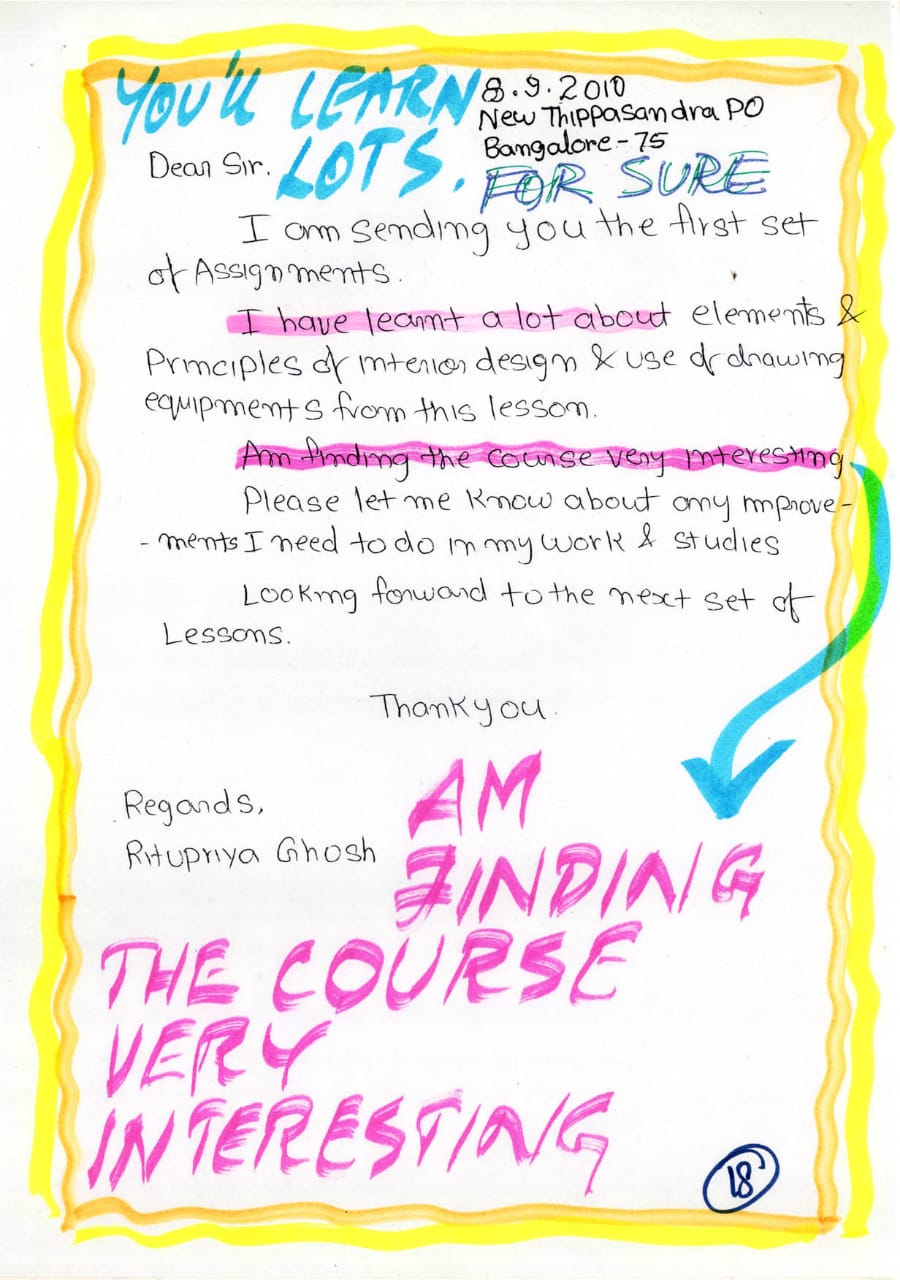 YOU'LL LEARN
LOTS.
FOR SURE
8.9.2010
New Thippasandra PO
Bangalore-75
Dear Sir.
I am sending you the first set
of Assignments.
I have learnt a lot about elements &
Principles of interior design & use of drawing
equipments from this lesson.
Am finding the course very interesting
Please let me know about any improve-
-ments I need to do in my work & studies
Looking forward to the next set of
Lessons.
Thank you.
Regards,
Ritupriya Ghosh
AM
FINDING
THE COURSE
VERY
INTERESTING
18